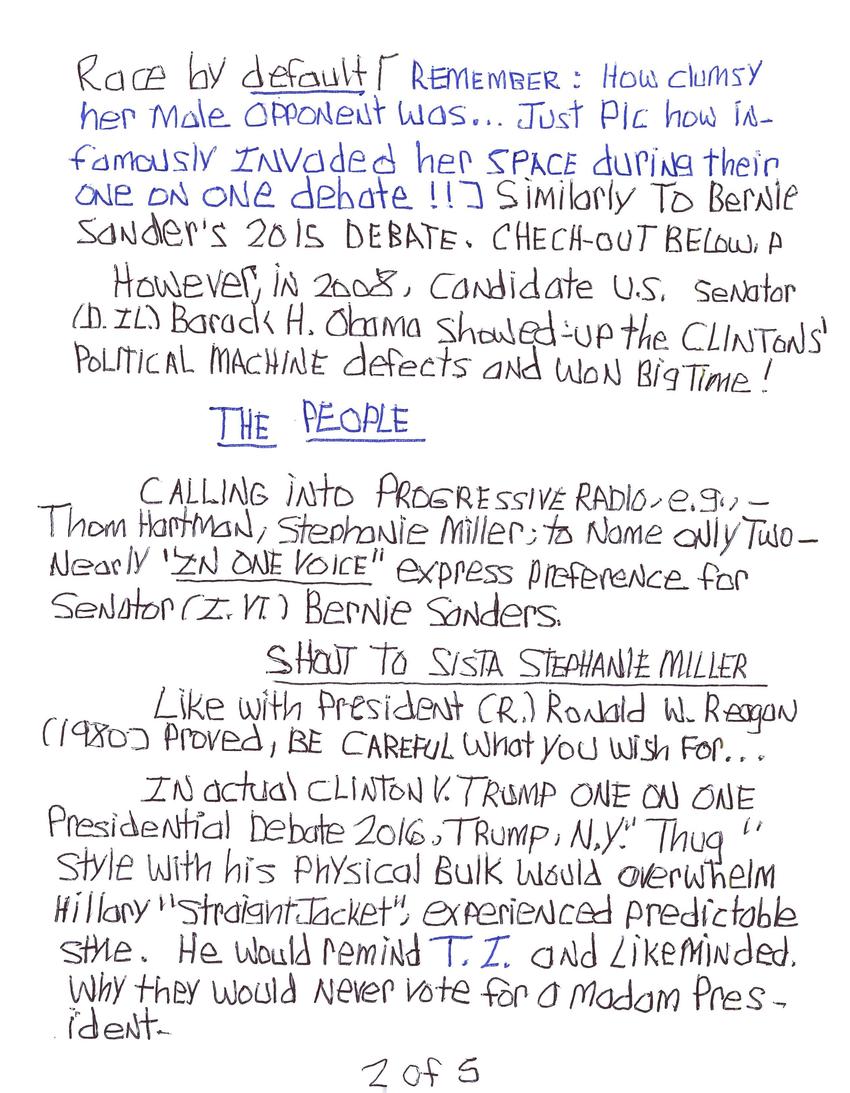 Race by default [ REMEMBER: How clumsy
her male OPPONENT was... Just Pic how in-
famously INVADED her SPACE during their
ONE ON ONE debate !!] Similarly To Bernie
Sander's 2015 DEBATE. CHECH-OUT BELOW, P
However, in 2008, Candidate U.S. Senator
(D. IL) Barack H. Obama showed-up the CLINTONS'
POLITICAL MACHINE defects and WON Big Time!
THE PEOPLE
CALLING into PROGRESSIVE RADIO, e.g., —
Thom Hartman, Stephanie Miller; to Name only Two —
Nearly "IN ONE VOICE" express preference for
Senator (I. VT.) Bernie Sanders.
SHOUT TO SISTA STEPHANIE MILLER
Like with President (R.) Ronald W. Reagan
(1980) Proved, BE CAREFUL What you Wish For...
IN actual CLINTON V. TRUMP ONE ON ONE
Presidential Debate 2016, TRUMP, N.Y." Thug "
Style with his Physical Bulk Would overwhelm
Hillary "StraightJacket", experienced predictable
stile. He would remind T. I. and LikeMinded.
Why they would Never vote for a Madam Pres-
ident-
2 of 5